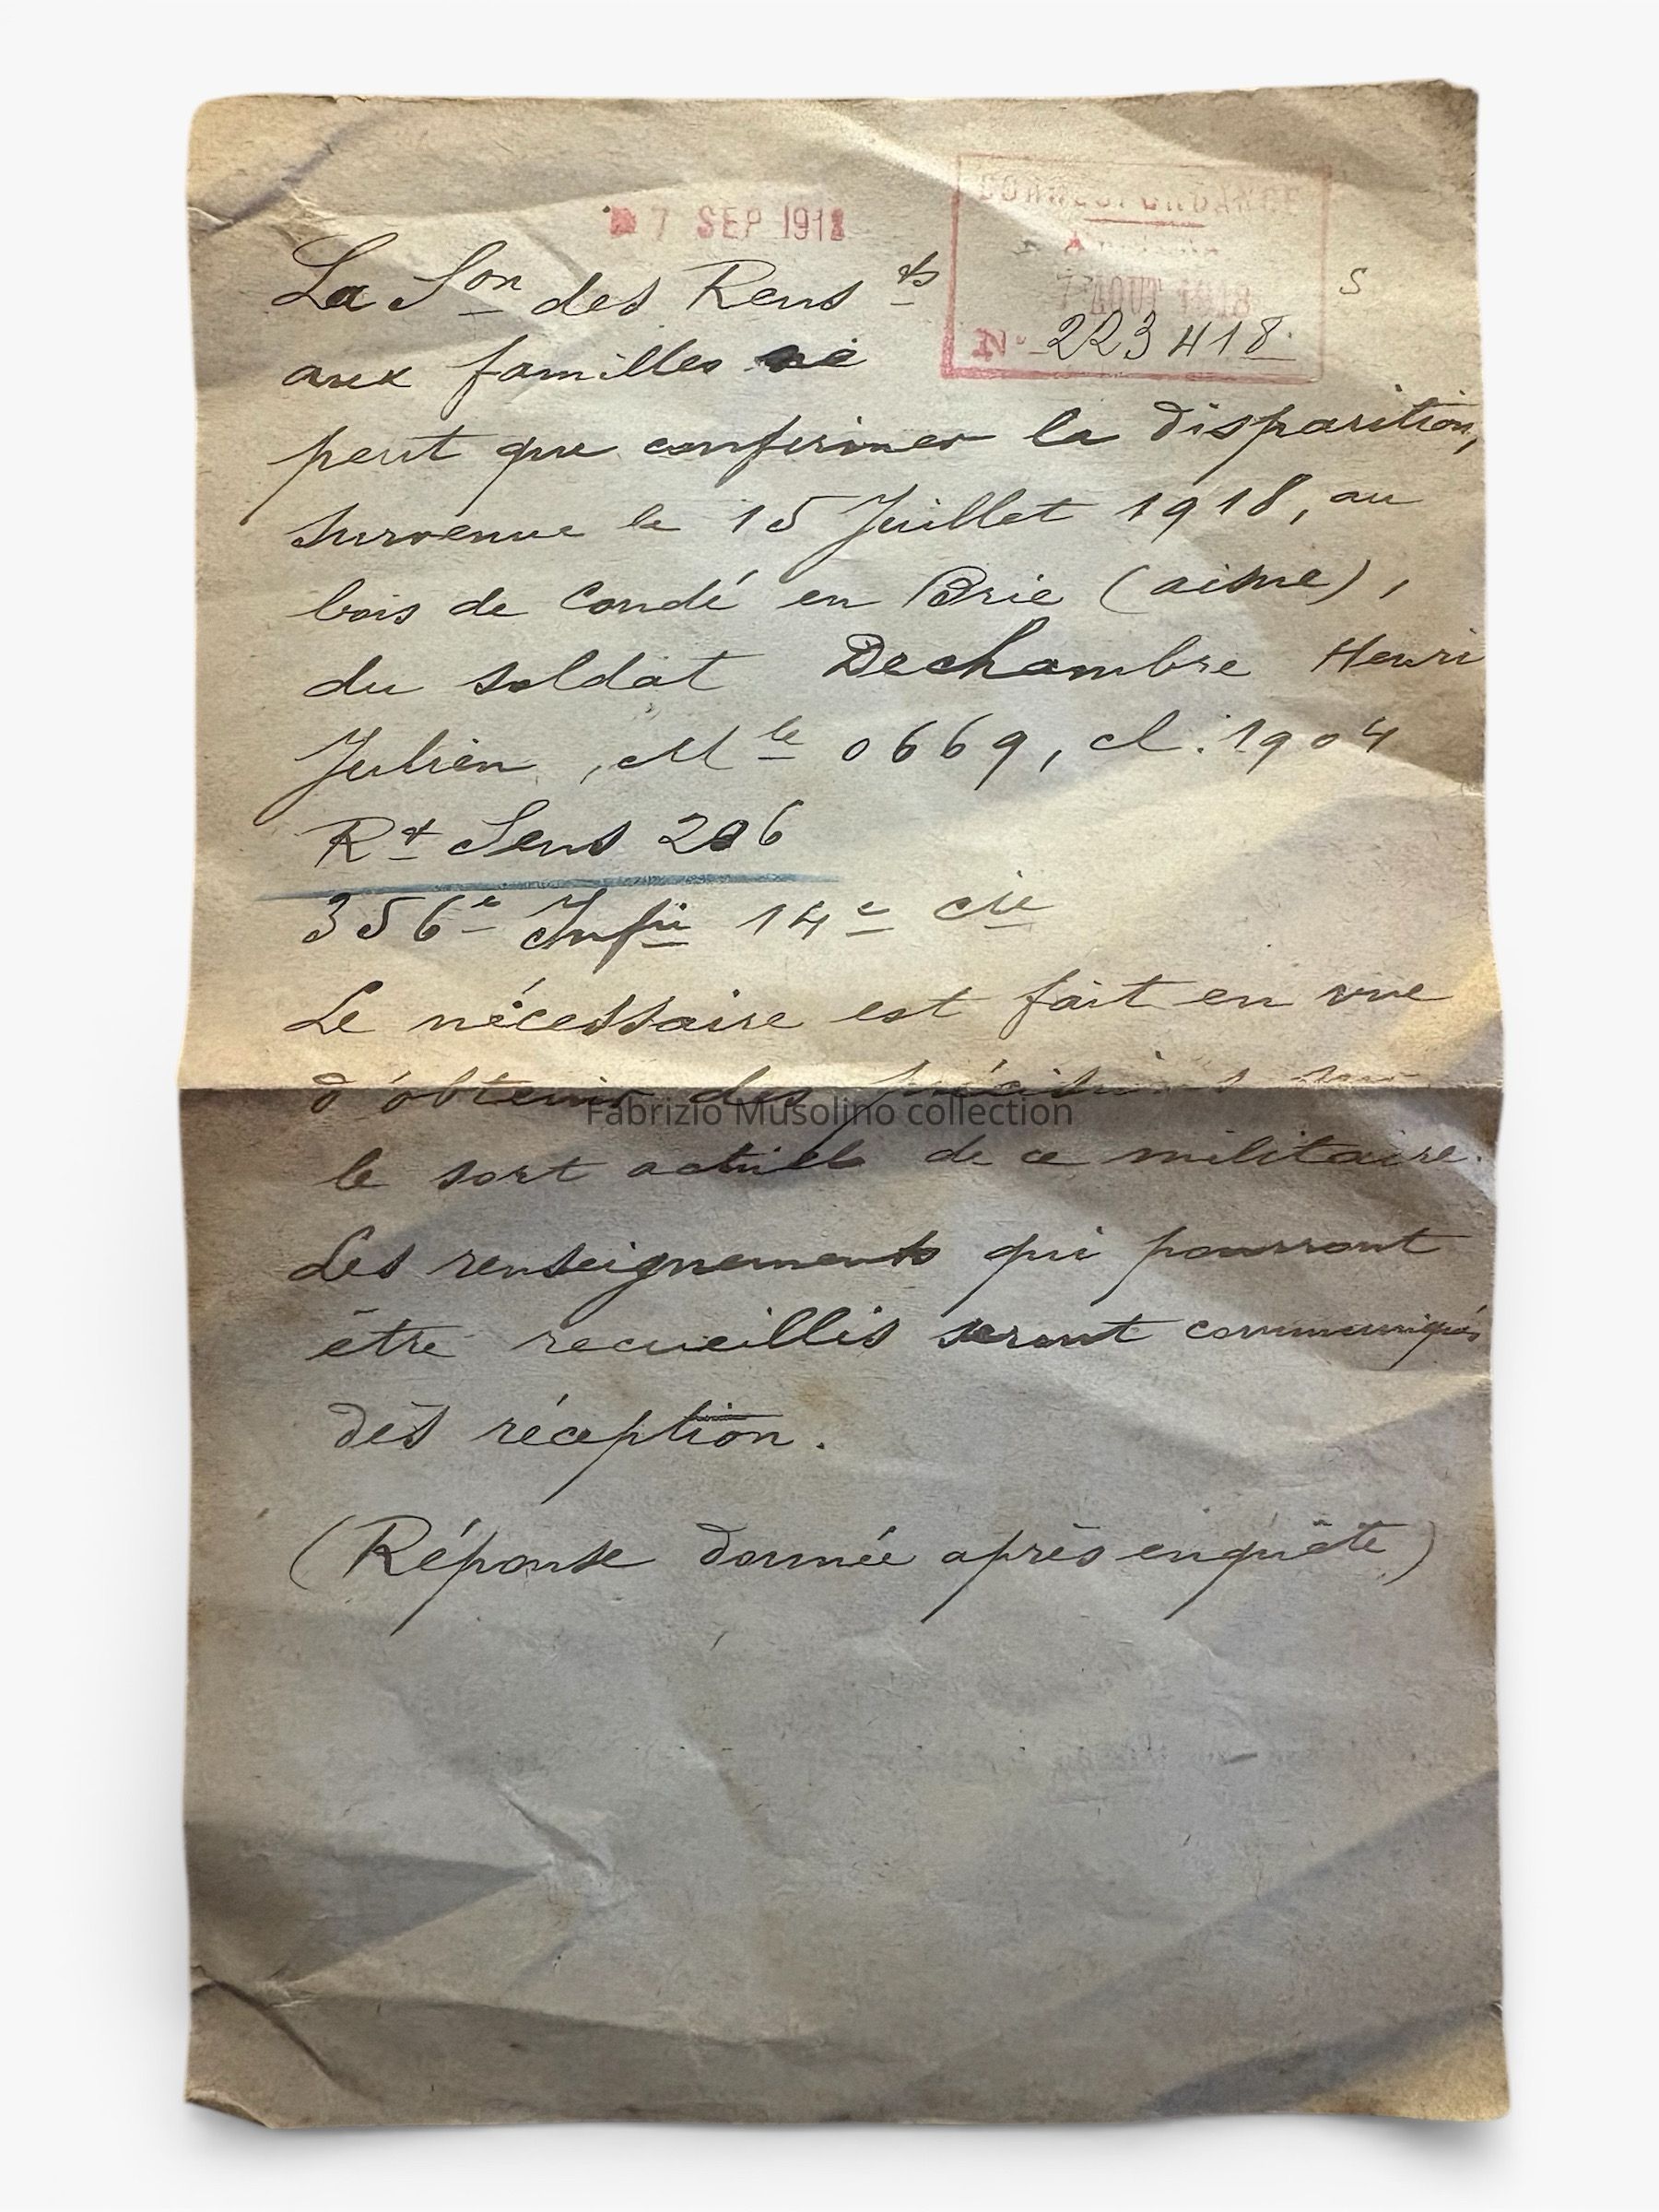 7 SEP 1918
CORRESPONDANCE
7 AOUT 1918
N° 223418
S
La Son des Rens ts
aux familles ne
peut que confirmer la disparition,
survenue le 15 Juillet 1918, au
bois de Condé en Brie (aisne),
du soldat Dechambre Henri
Julien, Mle 0669, cl. 1904
Rt Sens 206
356e Infie 14e cie
Le nécessaire est fait en vue
d'obtenir des précisions sur
Fabrizio Musolino collection
le sort actuel de ce militaire.
Les renseignements qui pourront
être recueillis seront communiqués
dès réception.
(Réponse donnée après enquête)